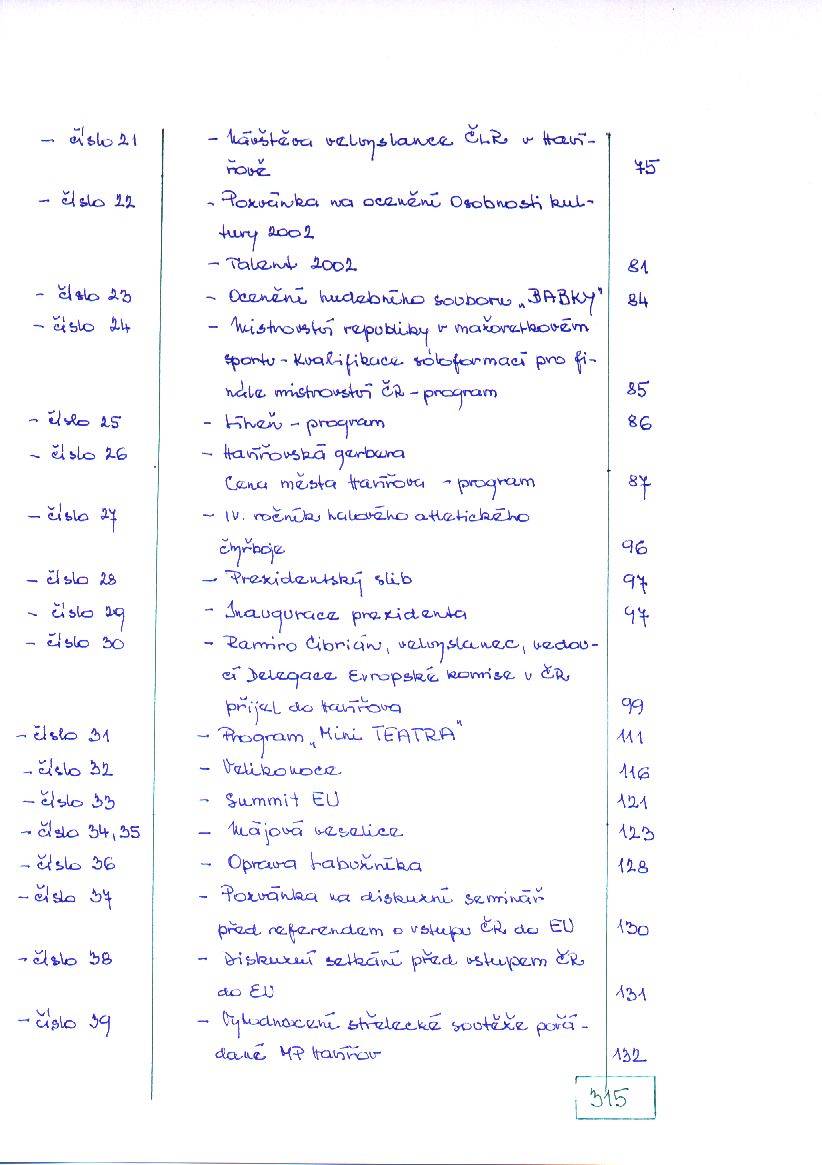 - číslo 21 - Návštěva velvyslance ČLR v Haví-
řově 75
- číslo 22 - Pozvánka na ocenění Osobnosti kul-
tury 2002
- Talent 2002 81
- číslo 23 - Ocenění hudebního souboru „BABKY" 84
- číslo 24 - Mistrovství republiky v mažoretkovém
sportu - Kvalifikace sóloformací pro fi-
nále mistrovství ČR - program 85
- číslo 25 - Líheň - program 86
- číslo 26 - Havířovská gerbera
Cena města Havířova - program 87
- číslo 27 - IV. ročník halového atletického
čtyřboje 96
- číslo 28 - Prezidentský slib 97
- číslo 29 - Inaugurace prezidenta 97
- číslo 30 - Ramiro Cibrián, velvyslanec, vedou-
cí Delegace Evropské komise v ČR
přijel do Havířova 99
- číslo 31 - Program „Mini TEATRA" 111
- číslo 32 - Velikonoce 116
- číslo 33 - Summit EU 121
- číslo 34, 35 - Májová veselice 123
- číslo 36 - Oprava Labužníka 128
- číslo 37 - Pozvánka na diskuzní seminář
před referendem o vstupu ČR do EU 130
- číslo 38 - Diskuzní setkání před vstupem ČR
do EU 131
- číslo 39 - Vyhodnocení střelecké soutěže pořá-
dané MP Havířov 132
315